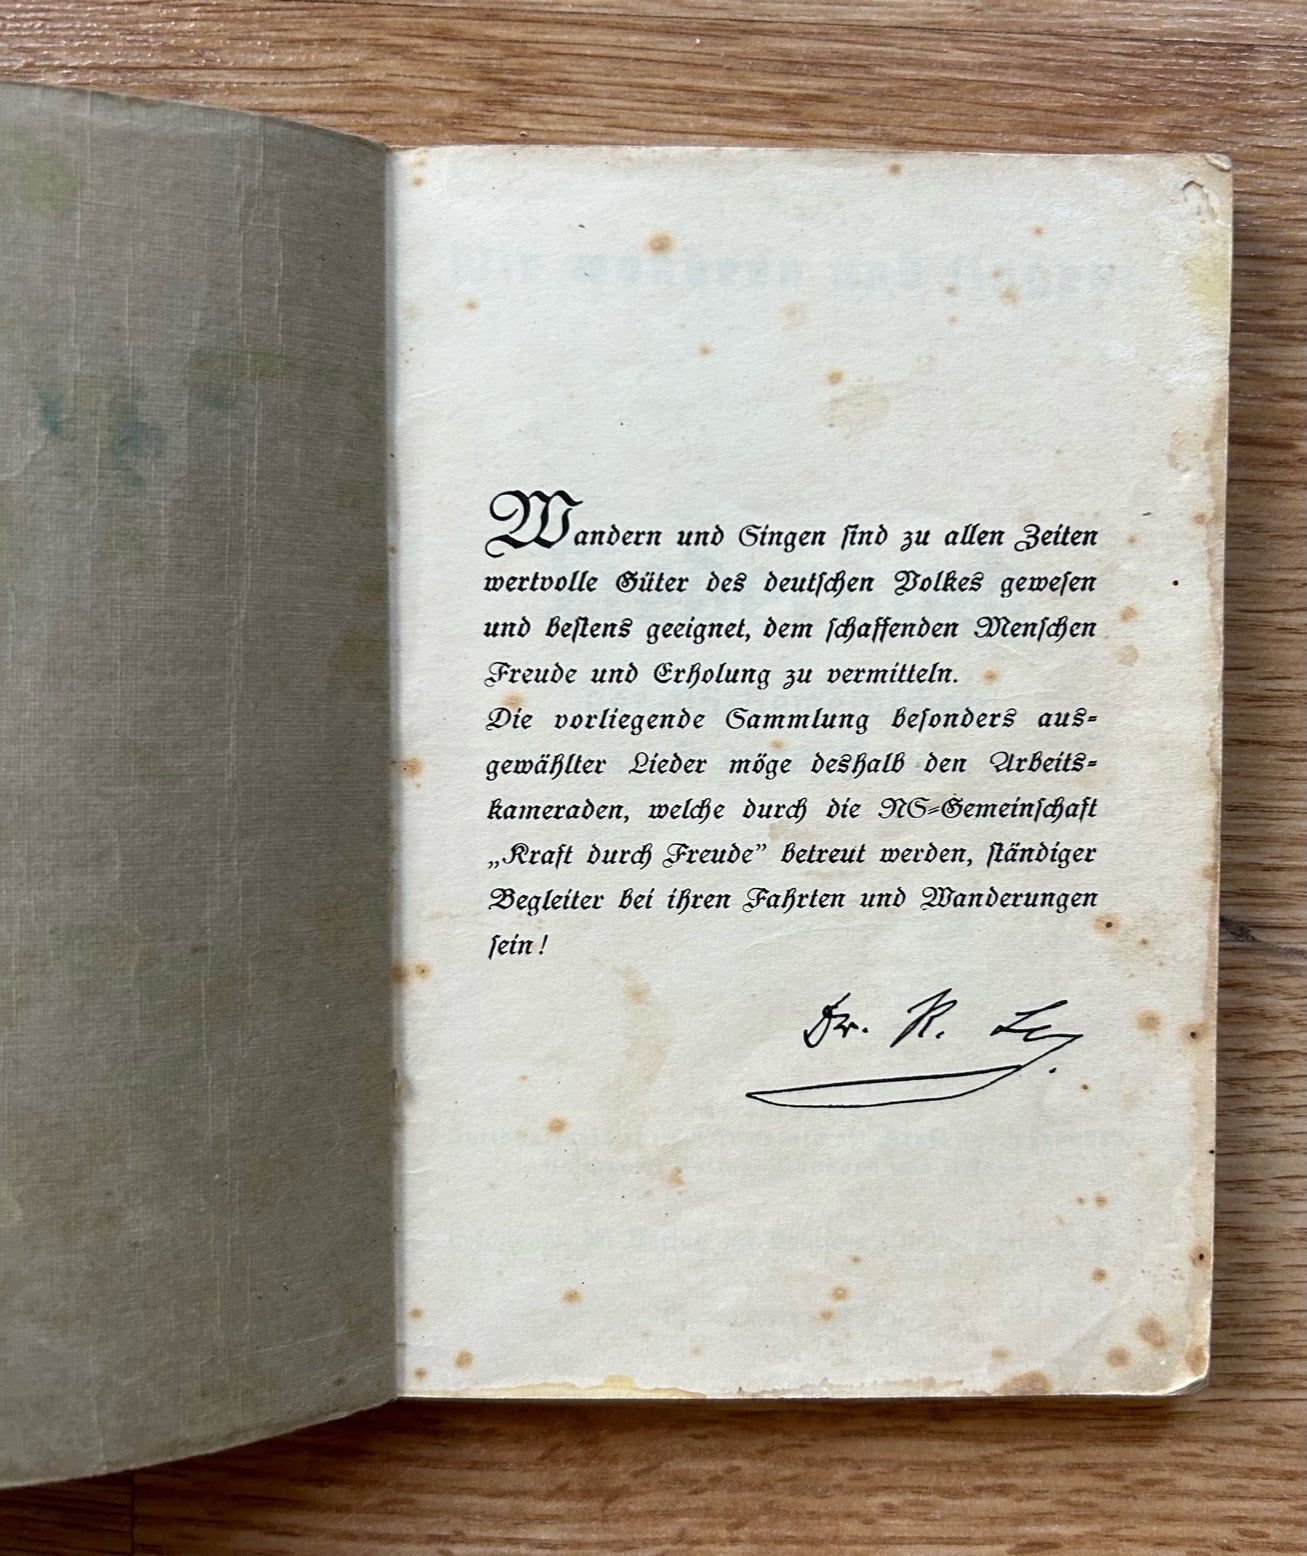 Wandern und Singen sind zu allen Zeiten
wertvolle Güter des deutschen Volkes gewesen
und bestens geeignet, dem schaffenden Menschen
Freude und Erholung zu vermitteln.
Die vorliegende Sammlung besonders aus-
gewählter Lieder möge deshalb den Arbeits-
kameraden, welche durch die NS-Gemeinschaft
„Kraft durch Freude” betreut werden, ständiger
Begleiter bei ihren Fahrten und Wanderungen
sein!
Dr. R. Ley.